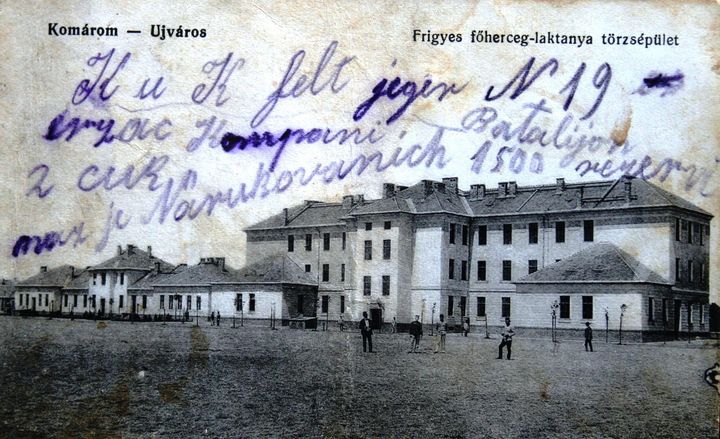 Komárom — Ujváros
Frigyes főherceg-laktanya törzsépület
K u K felt jeger N 19
erzac Kompani Batalijon
2 cuk Narukovanich 1500 rezervi
max je